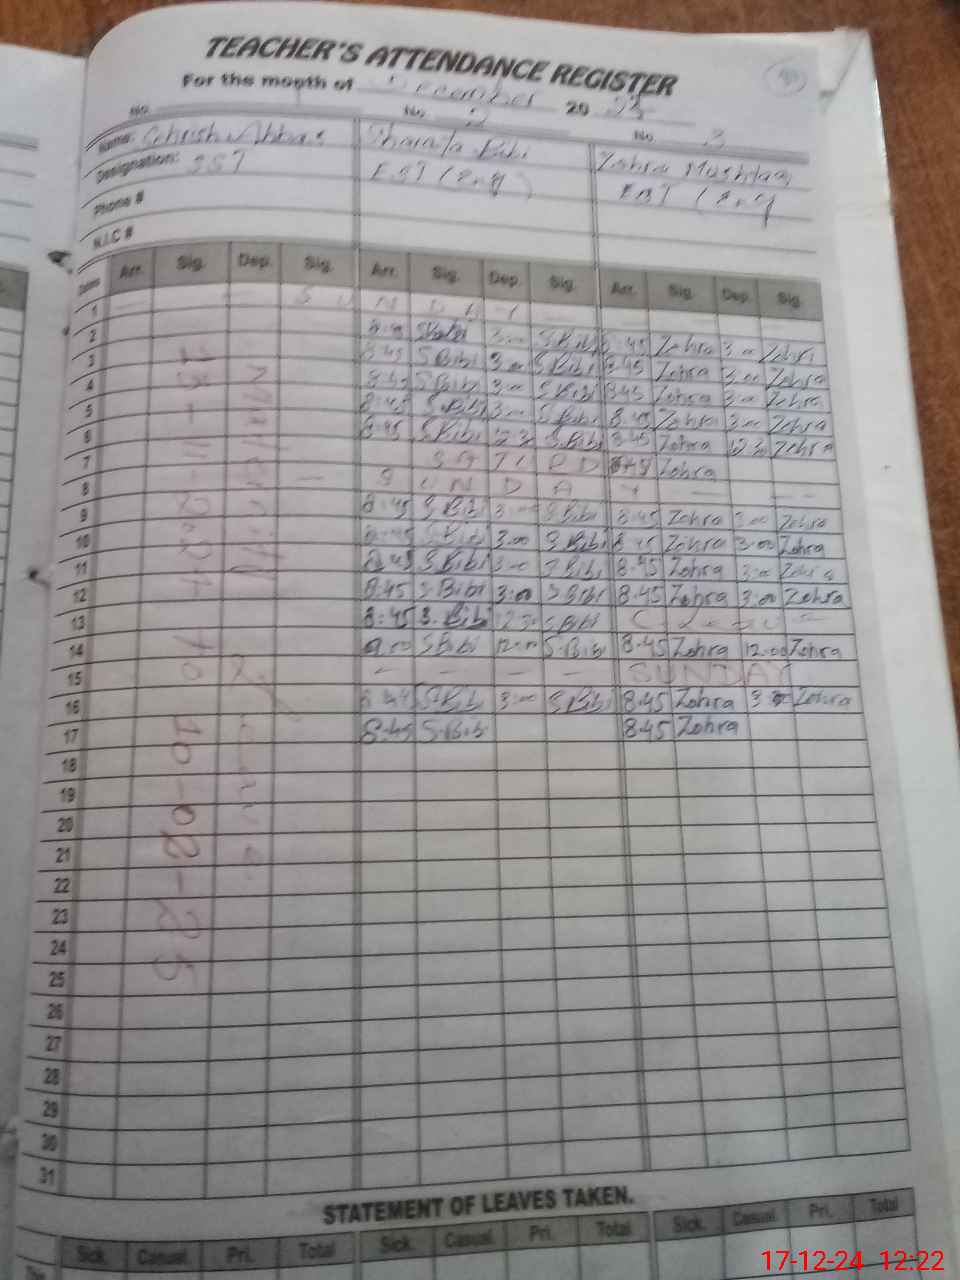 TEACHER'S ATTENDANCE REGISTER
For the month of December 20
No. No. 2 No. 3
Name: Bibi Zohra Mushtaq
Designation: SST EST (Eng) EST (Eng
Phone #
N.I.C #
Dates Arr. Sig. Dep. Sig. Arr. Sig. Dep. Sig. Arr. Sig. Dep. Sig.
1 S U N D A Y
2 8:45 3:00 S.Bibi 8:45 Zohra 3:00 Zohra
3 8:45 S.Bibi 3:00 S.Bibi 8:45 Zohra 3:00 Zohra
4 8:45 S.Bibi 3:00 S.Bibi 8:45 Zohra 3:00 Zohra
5 8:45 S.Bibi 3:00 S.Bibi 8:45 Zohra 3:00 Zohra
6 8:45 S.Bibi 12:3 S.Bibi 8:45 Zohra 12:30 Zohra
7 Zohra
8 S U N D A Y
9 8:45 S.Bibi 3:00 S.Bibi 8:45 Zohra 3:00 Zohra
10 8:45 S.Bibi 3:00 S.Bibi 8:45 Zohra 3:00 Zohra
11 8:45 S.Bibi 3:00 S.Bibi 8:45 Zohra 3:00 Zohra
12 8:45 S.Bibi 3:00 S.Bibi 8:45 Zohra 3:00 Zohra
13 8:45 S.Bibi 12:3 S.Bibi
14 9:00 S.Bibi 12:00 S.Bibi 8:45 Zohra 12:00 Zohra
15 — — — — SUNDAY
16 8:45 S.Bibi 3:00 S.Bibi 8:45 Zohra 3:00 Zohra
17 8:45 S.Bibi 8:45 Zohra
18
19
20
21
22
23
24
25
26
27
28
29
30
31
to 10-02-25
Leave
STATEMENT OF LEAVES TAKEN.
Sick. Casual. Pri. Total Sick. Casual. Pri. Total Sick. Casual. Pri. Total
17-12-24 12:22